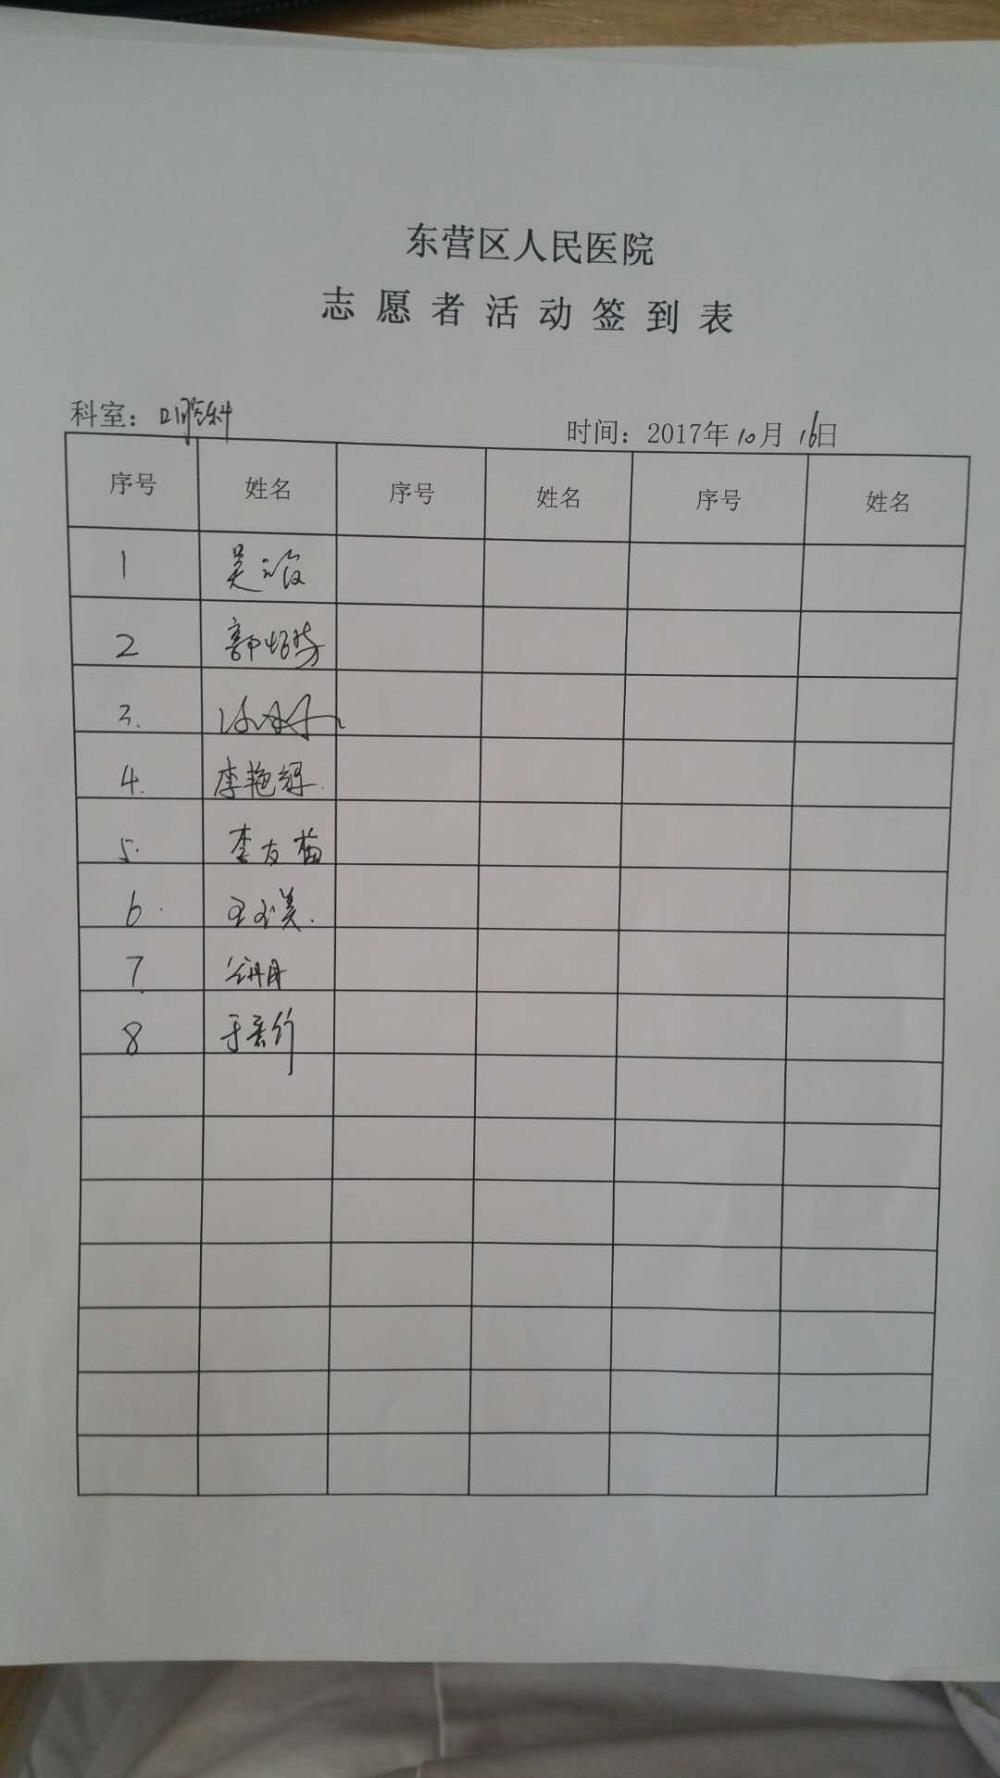 东营区人民医院
志愿者活动签到表
科室：口腔科 时间：2017年10月16日
序号 姓名 序号 姓名 序号 姓名
1 吴
2 郭
3.
4. 李艳辉.
5. 李友苗
6. 王玉美.
7
8 于